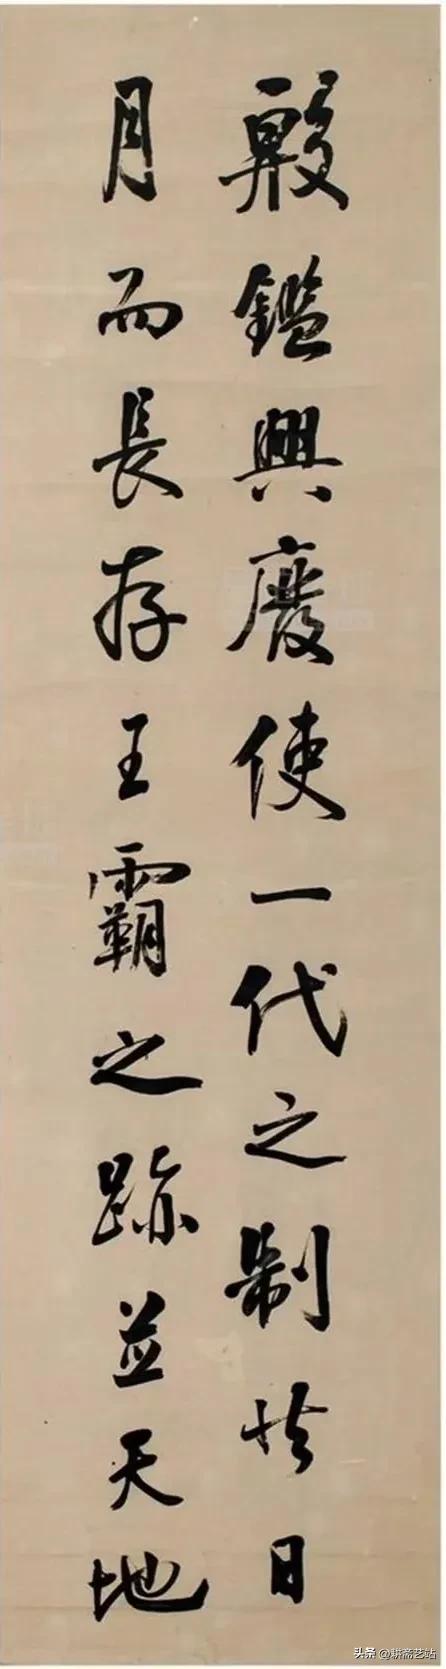 殷鑑興廢使一代之制共日
月而長存王霸之跡並天地
头条 @耕斋艺站